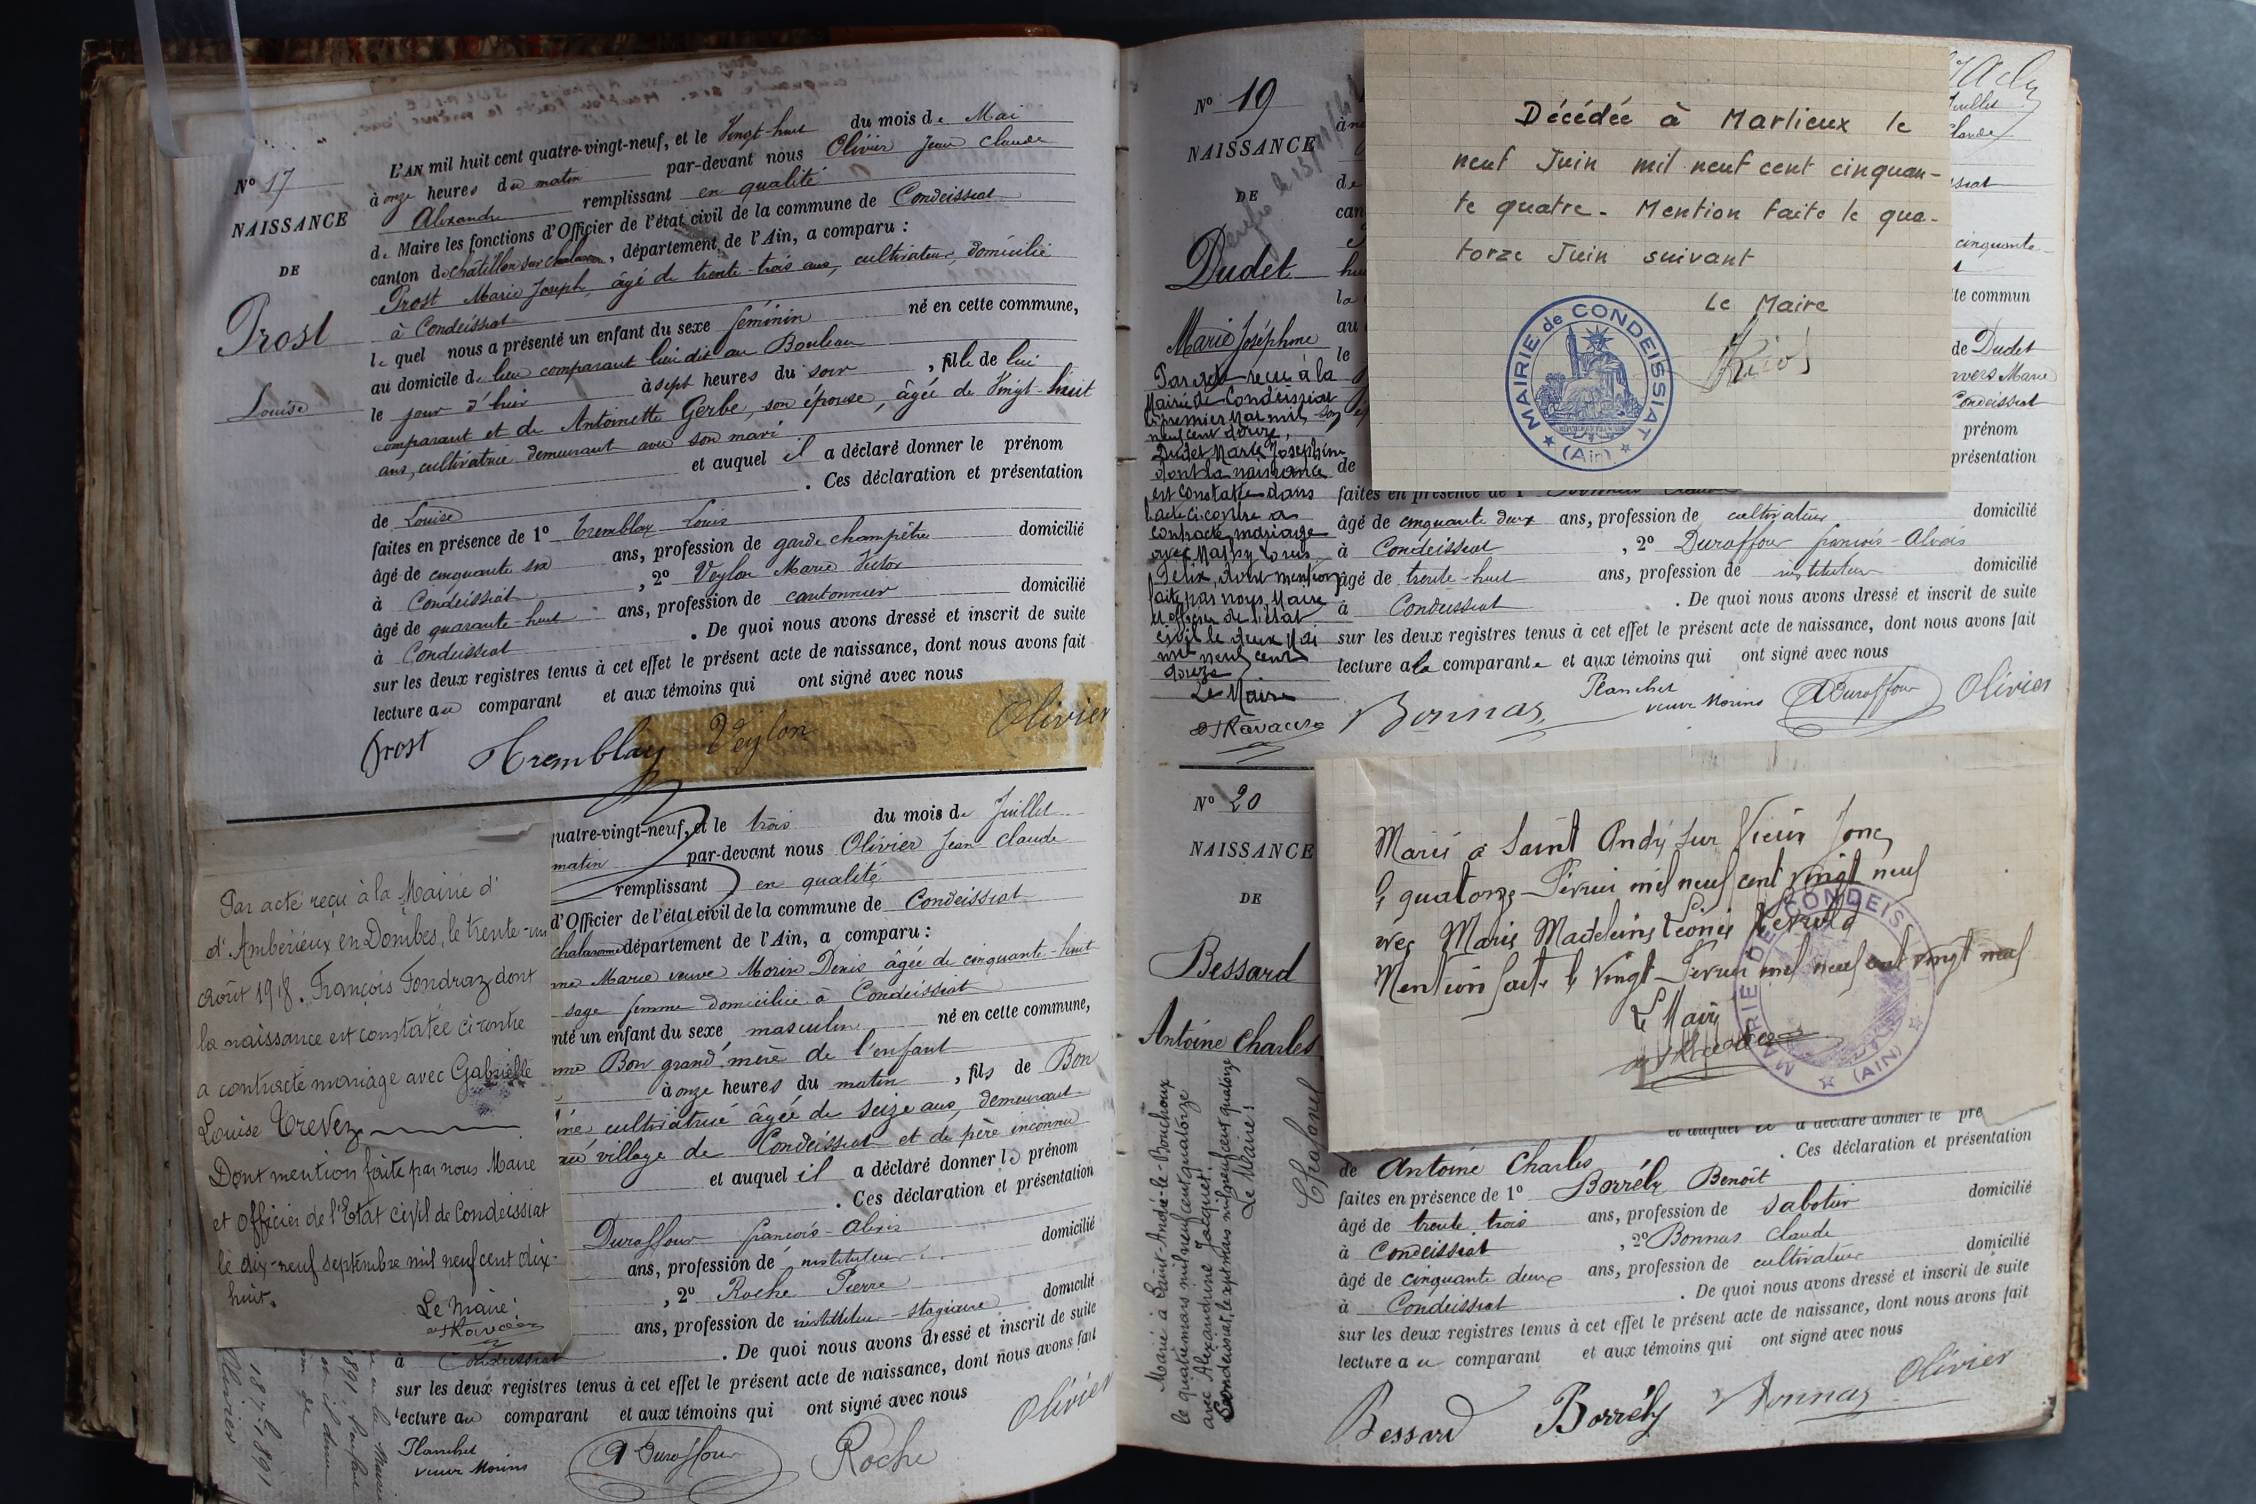 L'AN mil huit cent quatre-vingt-neuf, et le Vingt-huit du mois de Mai
à onze heures du matin par-devant nous Olivier Jean Claude
Alexandre remplissant en qualité
de Maire les fonctions d'Officier de l'état civil de la commune de Condeissiat
canton de chatillon sur chalaronne, département de l'Ain, a comparu :
Prost Marie Joseph, âgé de trente-trois ans, cultivateur, domicilié
à Condeissiat
le quel nous a présenté un enfant du sexe féminin né en cette commune,
au domicile de lieu comparant lieu dit au Bouleau
le jour d'hier à sept heures du soir, fille de lui
comparant et de Antoinette Gerbe, son épouse, âgée de Vingt-huit
ans, cultivatrice demeurant avec son mari
et auquel il a déclaré donner le prénom
de Louise . Ces déclaration et présentation
faites en présence de 1º Tremblay Louis
âgé de cinquante six ans, profession de garde champêtre domicilié
à Condeissiat, 2º Veylon Marie Victor
âgé de quarante-huit ans, profession de cantonnier domicilié
à Condeissiat . De quoi nous avons dressé et inscrit de suite
sur les deux registres tenus à cet effet le présent acte de naissance, dont nous avons fait
lecture au comparant et aux témoins qui ont signé avec nous
Prost Tremblay Veylon Olivier
Nº 17
NAISSANCE
DE
Prost
Louise
Par acte reçu à la Mairie d'
d'Ambérieux en Dombes, le trente-un
août 1918. François Fondraz dont
la naissance est constatée ci-contre
a contracté mariage avec Gabrielle
Louise Trevez
Dont mention faite par nous Maire
et officier de l'Etat civil de Condeissiat
le dix-neuf septembre mil neuf cent dix-
huit.
Le Maire:
quatre-vingt-neuf, et le trois du mois de Juillet
matin par-devant nous Olivier Jean Claude
remplissant en qualité
d'Officier de l'état civil de la commune de Condeissiat
chalaronne département de l'Ain, a comparu :
Marie veuve Morin Denis âgée de cinquante-huit
sage femme domiciliée à Condeissiat
nté un enfant du sexe masculin né en cette commune,
Bon grand'mère de l'enfant
à onze heures du matin, fils de Bon
cultivatrice âgée de seize ans, demeurant
village de Condeissiat et de père inconnu
et auquel il a déclaré donner le prénom
. Ces déclaration et présentation
Duraffour françois-Alexis
ans, profession de instituteur domicilié
, 2º Roche Pierre
ans, profession de instituteur-stagiaire domicilié
à Condeissiat . De quoi nous avons dressé et inscrit de suite
sur les deux registres tenus à cet effet le présent acte de naissance, dont nous avons fait
lecture au comparant et aux témoins qui ont signé avec nous
Planchet
veuve Morin Duraffour Roche Olivier
Olivier
1891
Nº 19
NAISSANCE
DE
Dudet
Marie Joséphine
Par acte reçu à la
Mairie de Condeissiat
le premier Mai mil
neuf cent douze,
Dudet Marie Joséphine
dont la naissance
est constatée dans
l'acte ci-contre a
contracté mariage
avec Mathy Louis
Félix, dont mention
faite par nous, Maire
et officier de l'état
civil le deux Mai
mil neuf cent
douze
Le Maire
Décédée à Marlieux le
neuf Juin mil neuf cent cinquan-
te quatre. Mention faite le qua-
torze Juin suivant
Le Maire
MAIRIE de CONDEISSIAT
(Ain)
Juillet
Claude
cinquante
te commun
de Dudet
Marie
Condeissiat
prénom
présentation
faites en présence de 1º
âgé de cinquante deux ans, profession de cultivateur domicilié
à Condeissiat, 2º Duraffour françois-Alexis
âgé de trente-huit ans, profession de instituteur domicilié
à Condeissiat . De quoi nous avons dressé et inscrit de suite
sur les deux registres tenus à cet effet le présent acte de naissance, dont nous avons fait
lecture à la comparante et aux témoins qui ont signé avec nous
Bonnas Planchet
veuve Morin Duraffour Olivier
Nº 20
NAISSANCE
DE
Bessard
Antoine Charles
Marié à Saint-André-le-Bouchoux
le quatre mars mil neuf cent quatorze
avec Alexandrine Jacquet.
Condeissiat, le sept mars mil neuf cent quatorze
Le Maire:
Marié à Saint André sur Vieux Jonc
le quatorze Février mil neuf cent vingt neuf
avec Marie Madeleine Léonie
Mention faite le vingt Février mil neuf cent vingt neuf
Le Maire
MAIRIE DE CONDEISSIAT
(AIN)
et auquel il a déclaré donner le pré
de Antoine Charles . Ces déclaration et présentation
faites en présence de 1º Borrély Benoît
âgé de trente trois ans, profession de sabotier domicilié
à Condeissiat, 2º Bonnas Claude
âgé de cinquante deux ans, profession de cultivateur domicilié
à Condeissiat . De quoi nous avons dressé et inscrit de suite
sur les deux registres tenus à cet effet le présent acte de naissance, dont nous avons fait
lecture au comparant et aux témoins qui ont signé avec nous
Bessard Borrély Bonnas Olivier